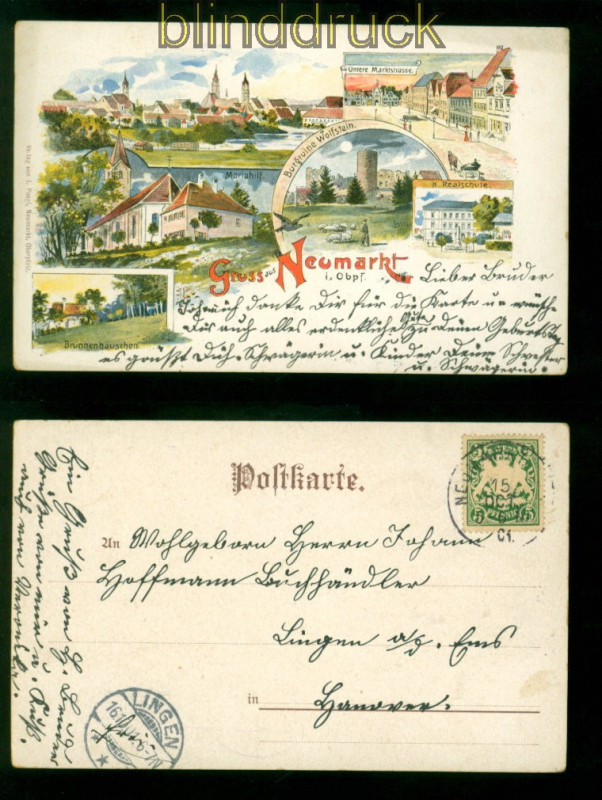 blinddruck
Untere Marktstrasse.
Mariahilf.
Burgruine Wolfstein.
K. Realschule.
Gruss aus Neumarkt
i. Obpf.
Brunnenhäuschen
Lieber Bruder
danke Dir für die Karte u. wünsche
Dir auch alles erdenkliche Gute zu Deinem Geburtstag
es grüßt Dich Schwägerin u. Kinder Deine Schwester
u. Schwägerin.
Postkarte.
An Wohlgeborn Herrn Johann
Hoffmann Buchhändler
Lingen a/d. Ems
in Hanover.
15
OCT
01.
5 5
LINGEN
Ein Gruß von